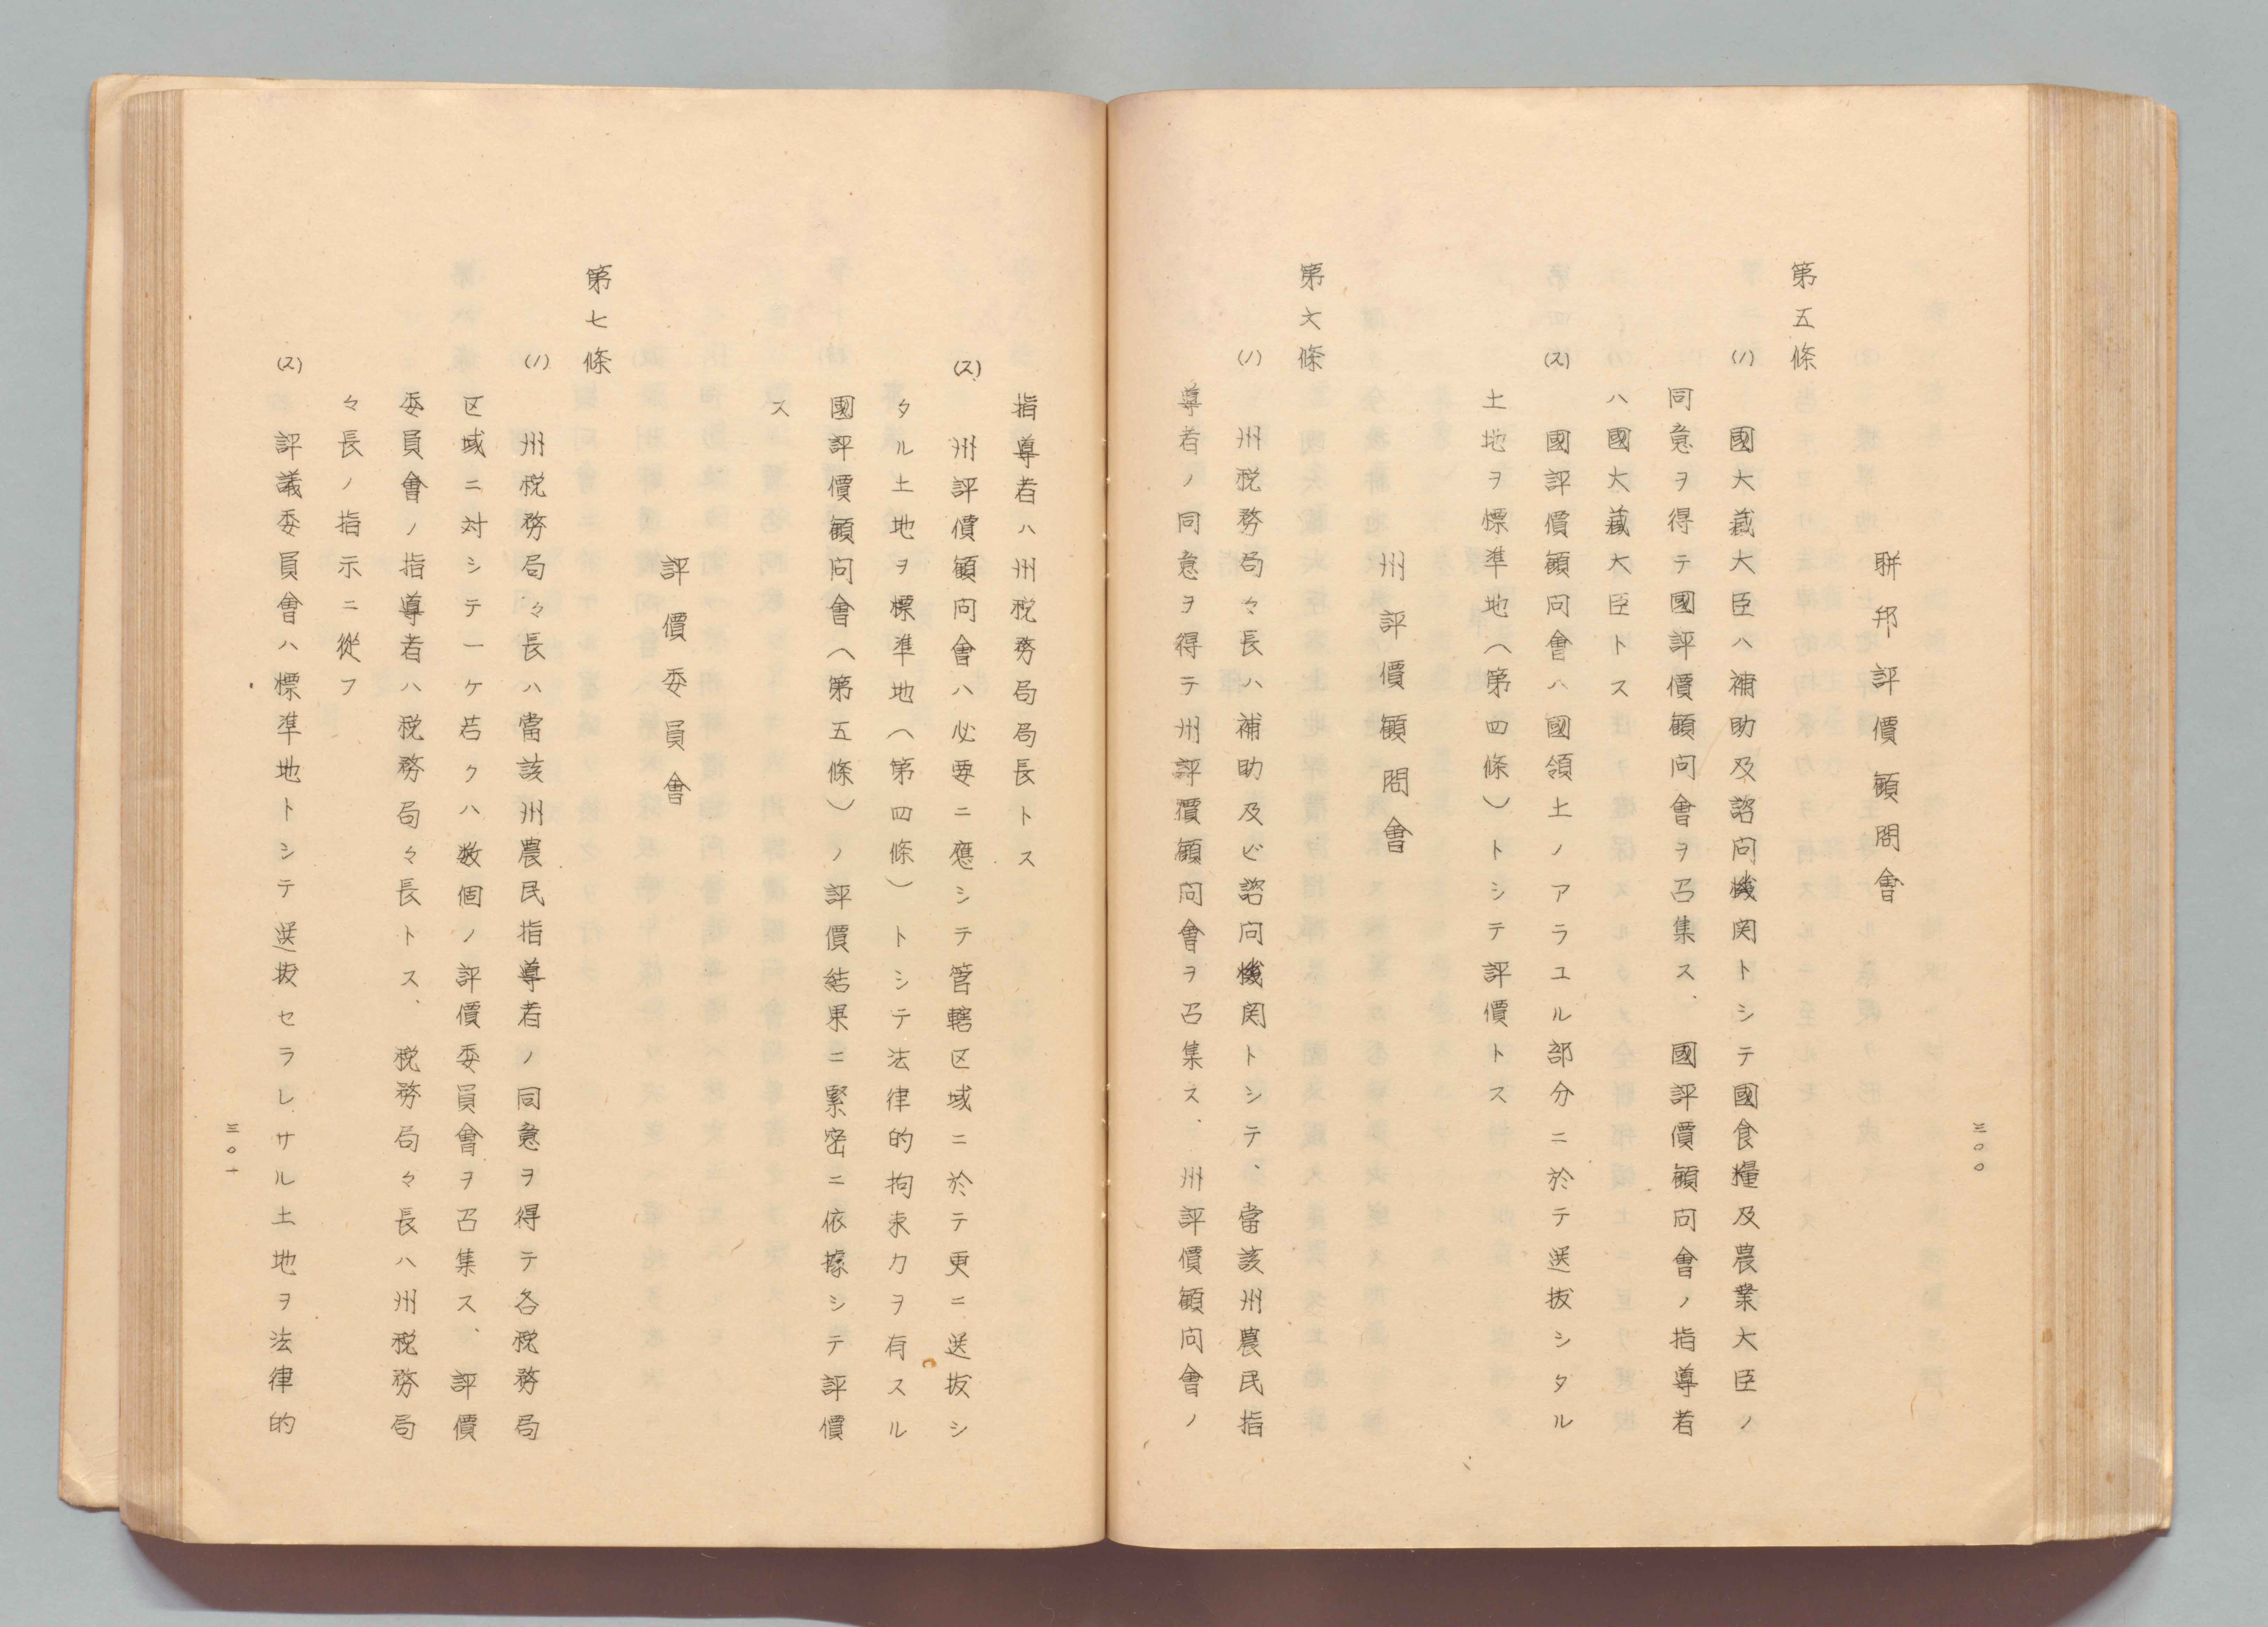 三〇〇
聯邦評價顧問會
第五條
(1) 國大藏大臣ハ補助及諮问機関トシテ國食糧及農業大臣ノ
同意ヲ得テ國評價顧问會ヲ召集ス、國評價顧问會ノ指導者
ハ國大藏大臣トス
(2) 國評價顧问會ハ國領土ノアラユル部分ニ於テ選拔シタル
土地ヲ標準地(第四條)トシテ評價トス
州評價顧問會
第六條
(1) 州税務局々長ハ補助及ビ諮问機関トシテ、當該州農民指
導者ノ同意ヲ得テ州評價顧问會ヲ召集ス、州評價顧问會ノ
指導者ハ州税務局局長トス
(2) 州評價顧问會ハ必要ニ應シテ管轄区域ニ於テ更ニ送拔シ
タル土地ヲ標準地(第四條)トシテ法律的拘束力ヲ有スル
國評價顧问會(第五條)ノ評價結果ニ緊密ニ依據シテ評價
ス
評價委員會
第七條
(1) 州税務局々長ハ當該州農民指導者ノ同意ヲ得テ各税務局
区域ニ対シテ一ケ若クハ数個ノ評價委員會ヲ召集ス、評價
委員會ノ指導者ハ税務局々長トス、税務局々長ハ州税務局
々長ノ指示ニ從フ
(2) 評議委員會ハ標準地トシテ選拔セラレサル土地ヲ法律的
三〇一